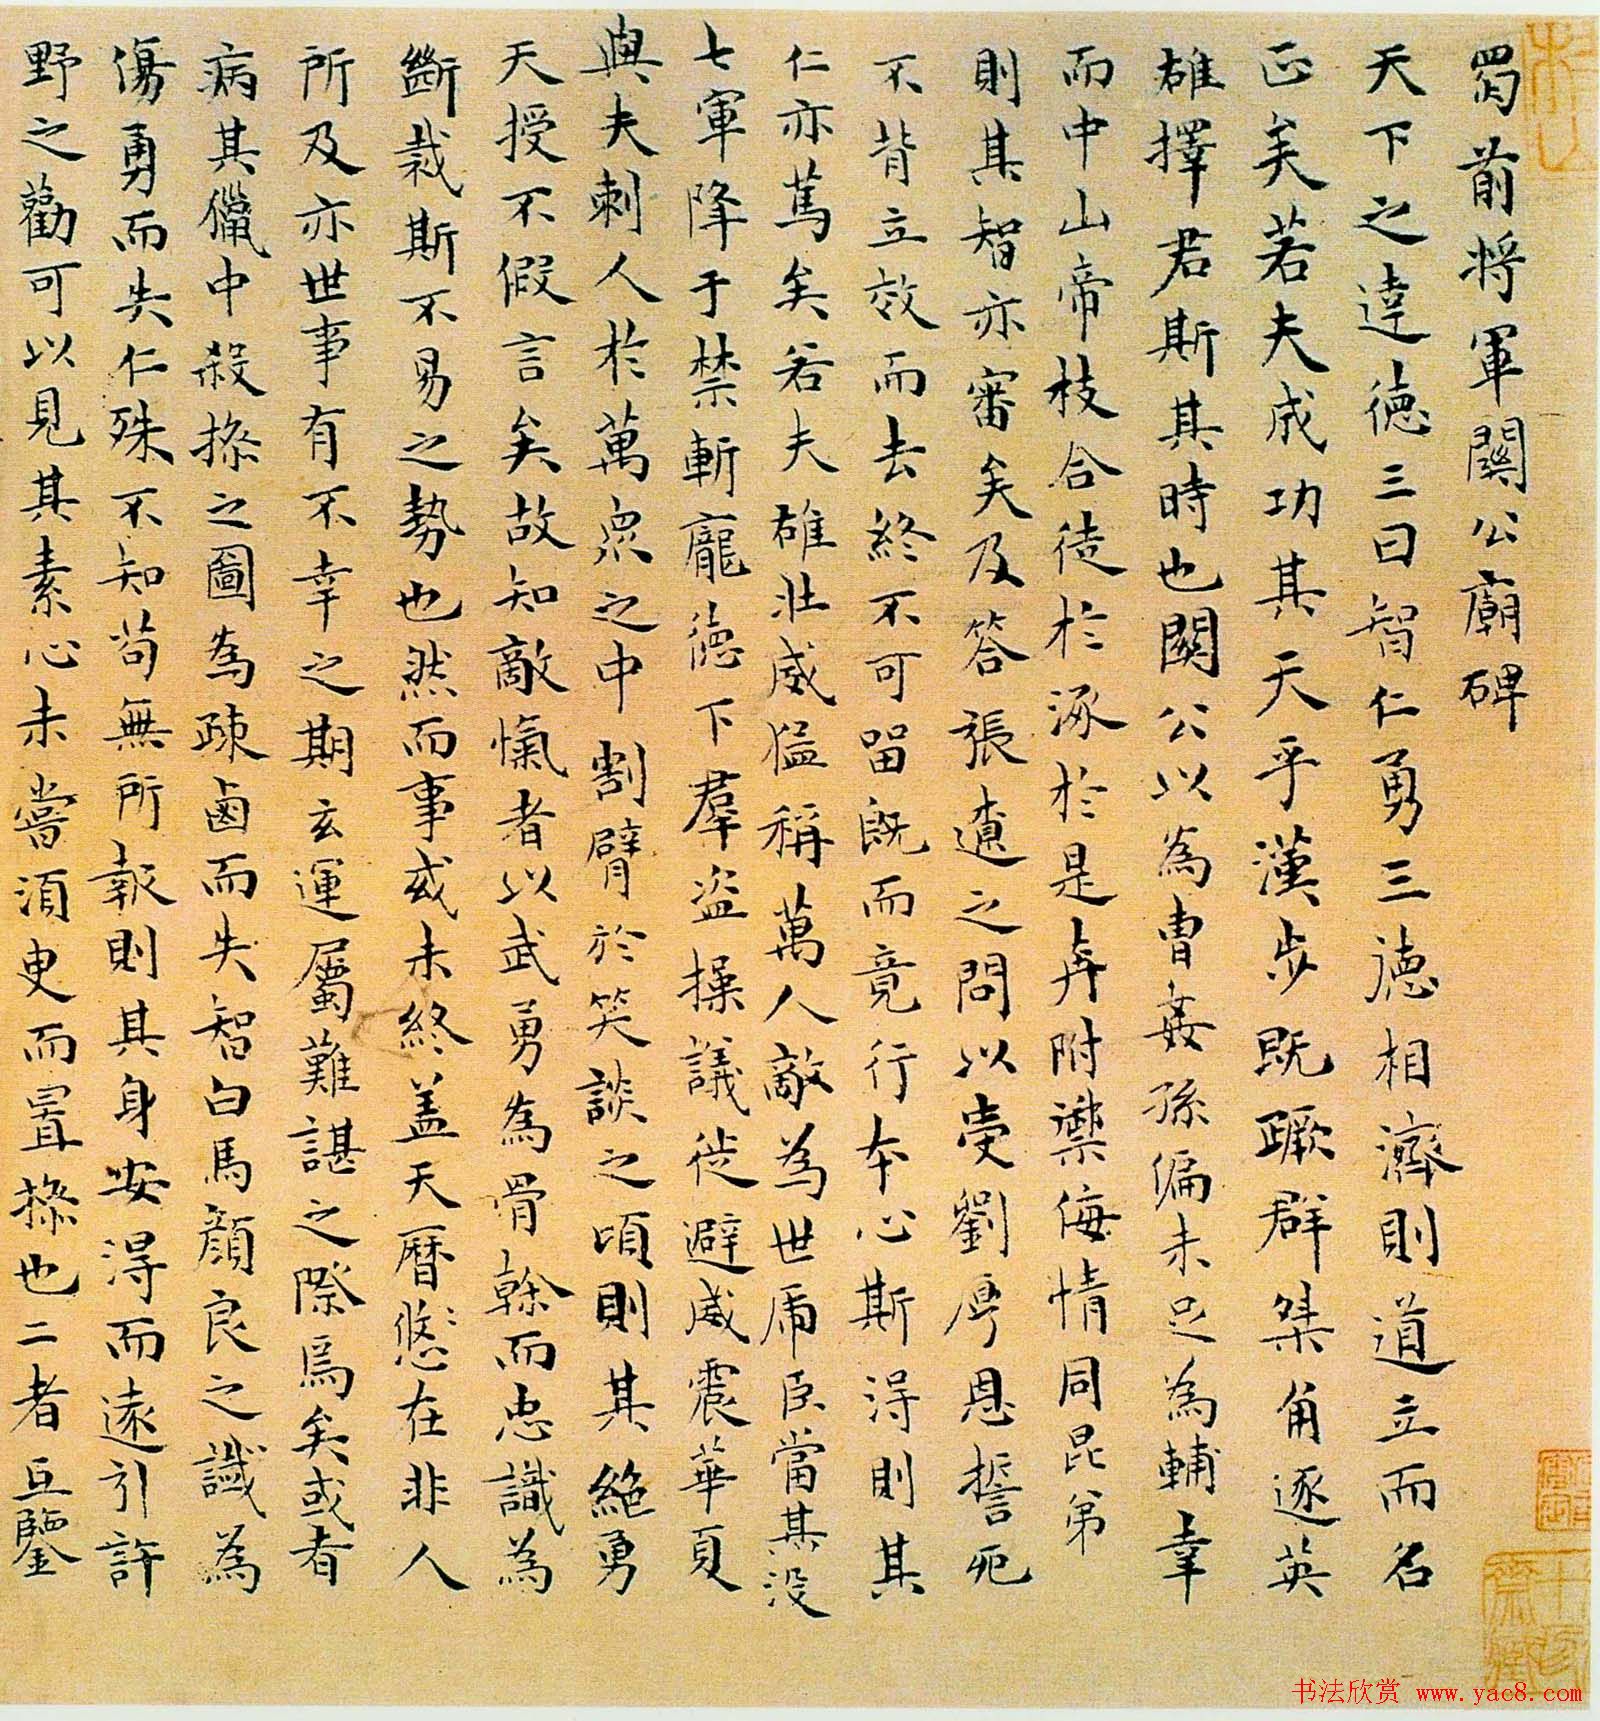 蜀前将軍關公廟碑
天下之達德三曰智仁勇三德相濟則道立而名
正矣若夫成功其天乎漢步既蹶群桀角逐英
雄擇君斯其時也關公以為曹姦孫偏未足為輔幸
而中山帝枝合徒於涿於是奔附禦侮情同昆弟
則其智亦審矣及答張遼之問以受劉厚恩誓死
不背立效而去終不可留既而竟行本心斯得則其
仁亦篤矣若夫雄壯威猛稱萬人敵為世虎臣當其没
七軍降于禁斬龐德下羣盗操議徙避威震華夏
與夫刺人於萬衆之中割臂於笑談之頃則其絶勇
天授不假言矣故知敵愾者以武勇為骨榦而忠識為
斷裁斯不易之勢也然而事或未終盖天曆悠〻在非人
所及亦世事有不幸之期玄運屬難諶之際焉矣或者
病其獵中殺操之圖為疎鹵而失智白馬顔良之識為
傷勇而失仁殊不知茍無所報則其身安得而遠引許
野之勸可以見其素心未嘗須臾而置操也二者互鑒
书法欣赏 www.yac8.com